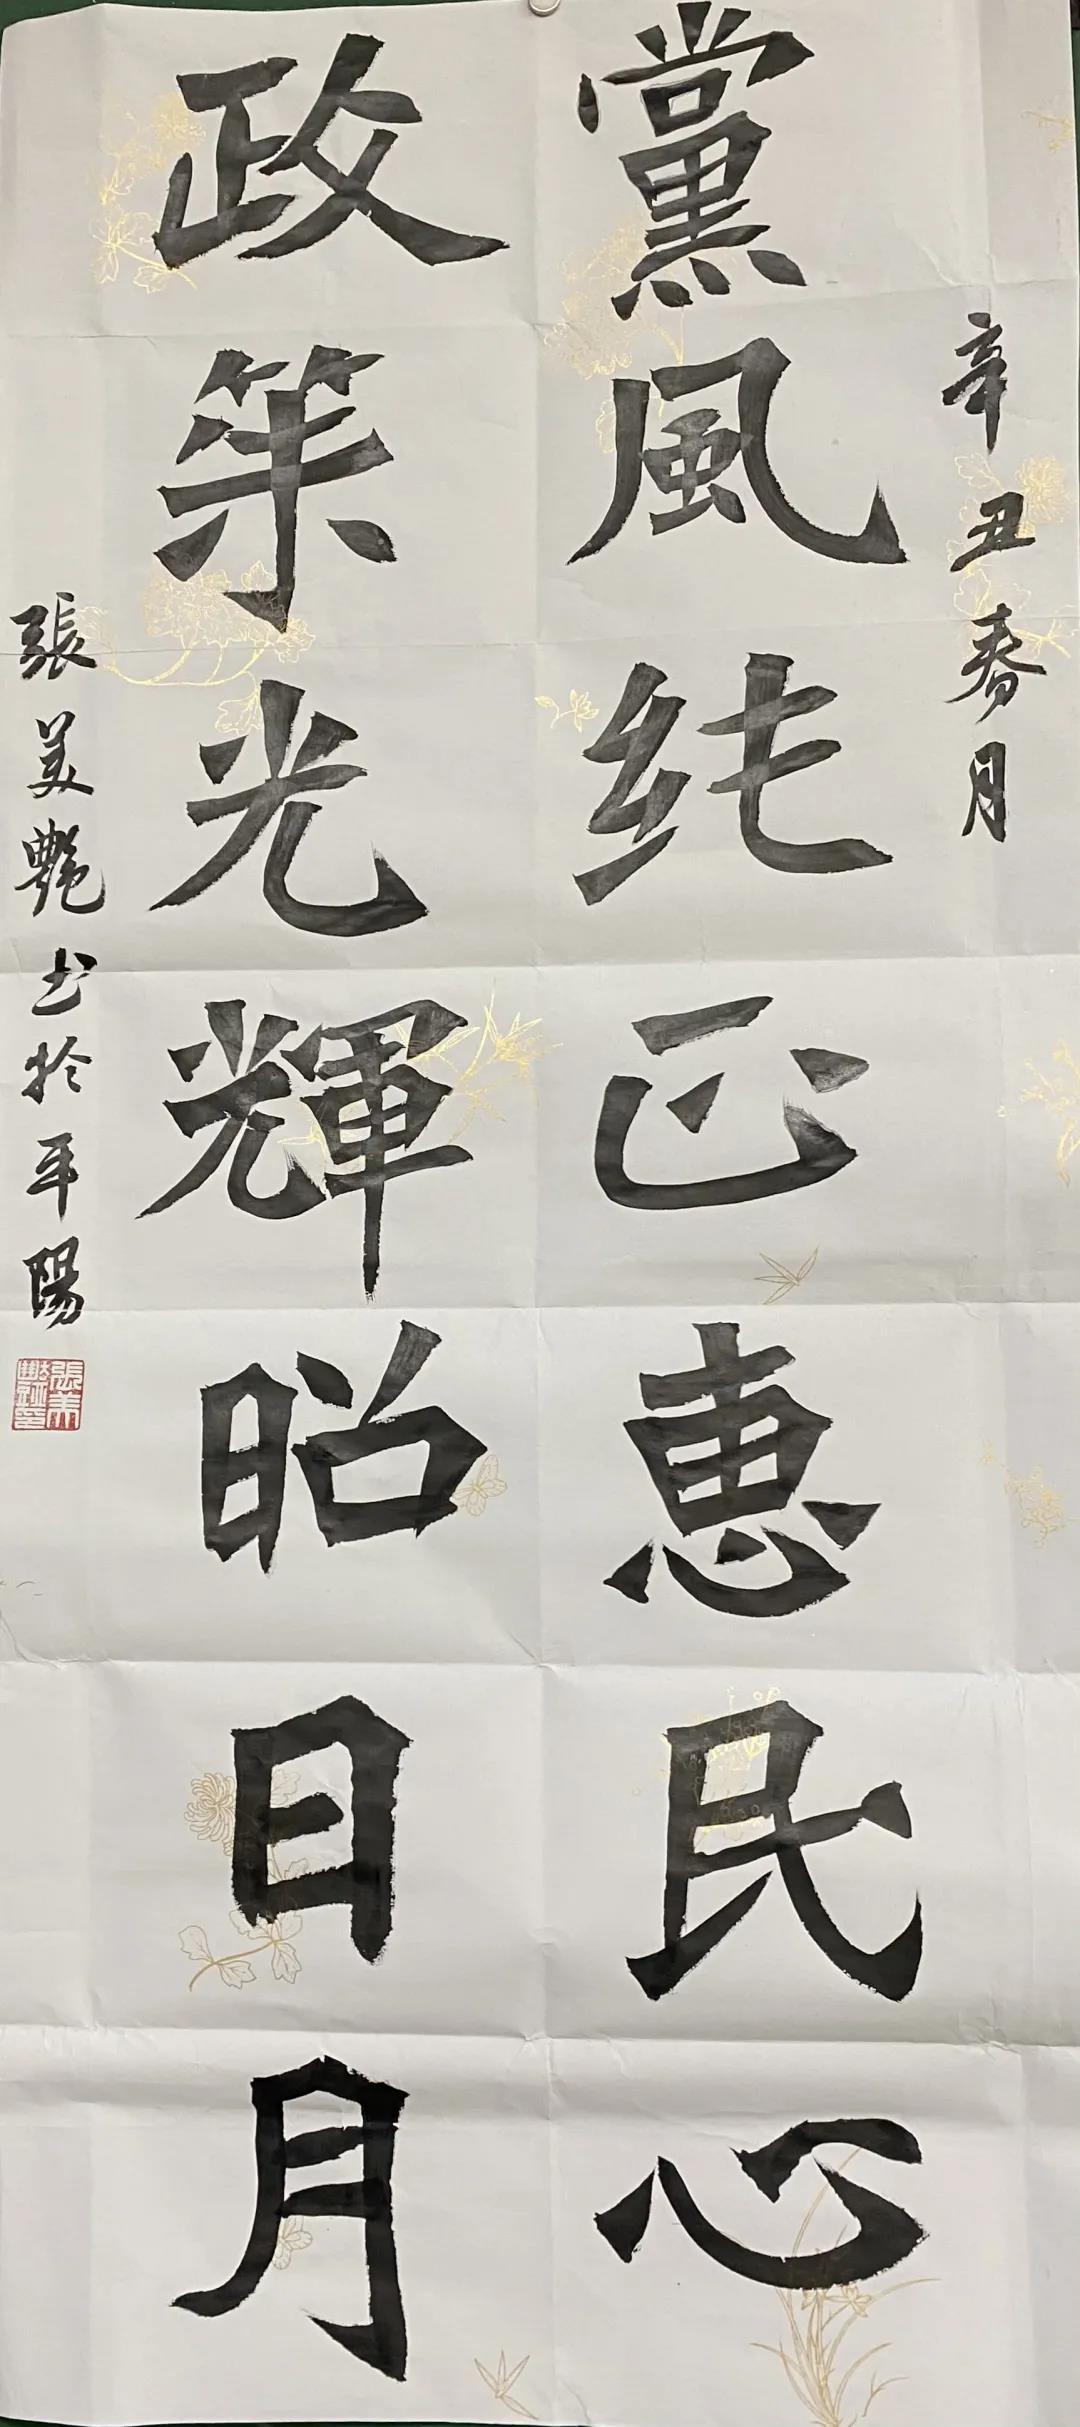 辛丑春月
黨風純正惠民心
政策光輝昭日月
張美艷书於平陽
張美艷印